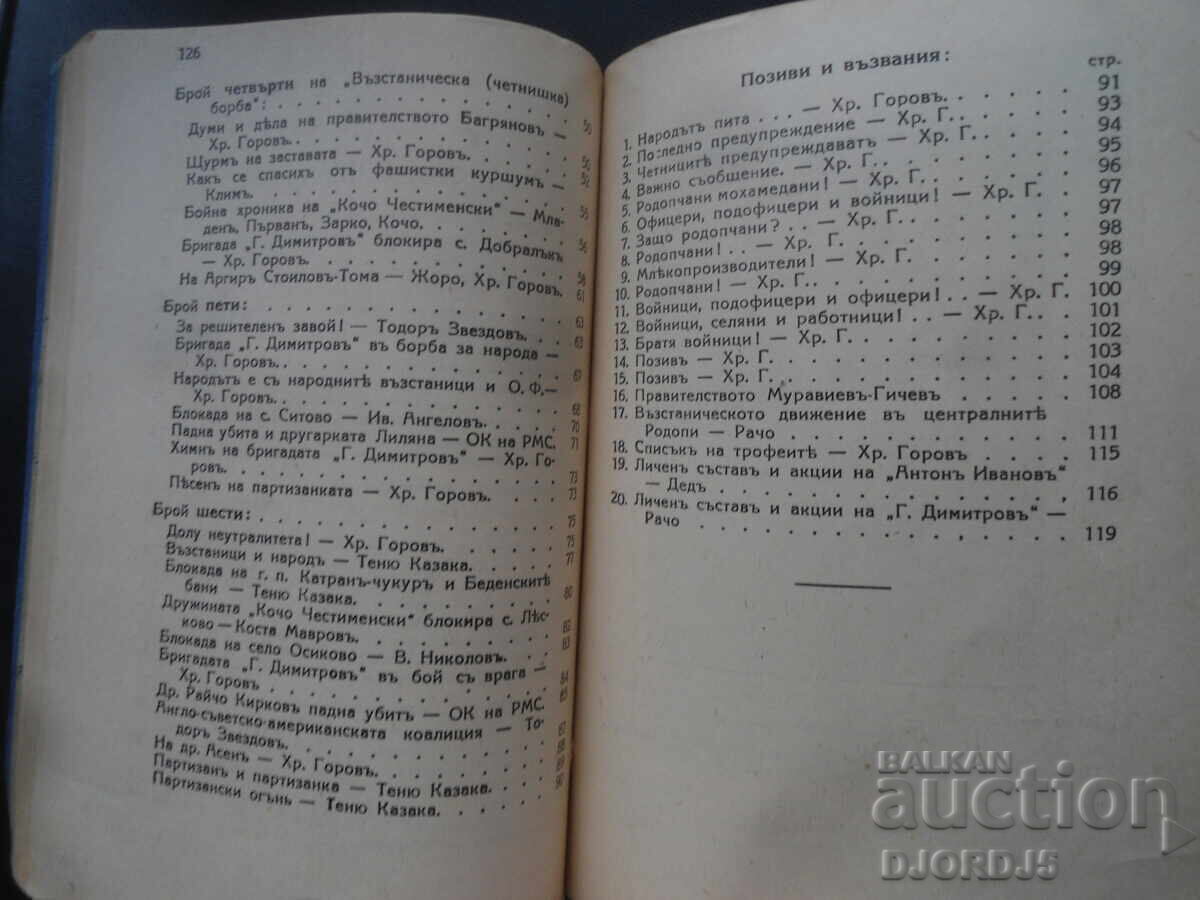 126
Брой четвърти на „Възстаническа (четнишка)
борба“: . . . . . . . . . . . . . 50
Думи и дѣла на правителството Багряновъ —
Хр. Горовъ. . . . . . . . . . . . . 50
Щурмъ на заставата — Хр. Горовъ. . . . . 52
Какъ се спасихъ отъ фашистки куршумъ —
Климъ. . . . . . . . . . . . . 56
Бойна хроника на „Кочо Честименски“ — Мла-
денъ, Първанъ, Зарко, Кочо. . . . . . . 56
Бригада „Г. Димитровъ“ блокира с. Добралъкъ
— Хр. Горовъ. . . . . . . . . . . 58
На Аргиръ Стоиловъ-Тома — Жоро, Хр. Горовъ. 61
Брой пети: . . . . . . . . . . . . . 63
За решителенъ завой! — Тодоръ Звездовъ. . . 63
Бригада „Г. Димитровъ“ въ борба за народа —
Хр. Горовъ. . . . . . . . . . . . . 67
Народътъ е съ народнитѣ възстаници и О. Ф.—
Хр. Горовъ. . . . . . . . . . . . . 68
Блокада на с. Ситово — Ив. Ангеловъ. . . . 70
Падна убита и другарката Лиляна — ОК на РМС. 71
Химнъ на бригадата „Г. Димитровъ“ — Хр. Го-
ровъ. . . . . . . . . . . . . 73
Пѣсень на партизанката — Хр. Горовъ. . . . 73
Брой шести: . . . . . . . . . . . . . 75
Долу неутралитета! — Хр. Горовъ. . . . . . 75
Възстаници и народъ — Теню Казака. . . . . 77
Блокада на г. п. Катранъ-чукуръ и Беденскитѣ
бани — Теню Казака. . . . . . . . . 80
Дружината „Кочо Честименски“ блокира с. Лѣс-
ково — Коста Мавровъ. . . . . . . . 82
Блокада на село Осиково — В. Николовъ. . . 83
Бригадата „Г. Димитровъ“ въ бой съ врага —
Хр. Горовъ . . . . . . . . . . . . 84
Др. Райчо Кирковъ падна убитъ — ОК на РМС. 85
Англо-съветско-американската коалиция — То-
доръ Звездовъ. . . . . . . . . . . 87
На др. Асенъ — Хр. Горовъ. . . . . . . . 88
Партизанъ и партизанка — Теню Казака. . . . 89
Партизански огънь — Теню Казака. . . . . 90
Позиви и възвания:
стр.
1. Народътъ пита . . . — Хр. Горовъ. . . . . . 91
2. Последно предупреждение — Хр. Г.. . . . . 93
3. Четницитѣ предупреждаватъ — Хр. Г.. . . . 94
4. Важно съобщение. — Хр. Г.. . . . . . . 95
5. Родопчани мохамедани! — Хр. Г.. . . . . 96
6. Офицери, подофицери и войници! — Хр. Г. . 97
7. Защо родопчани? . . — Хр. Г.. . . . . . 97
8. Родопчани! . . — Хр. Г. . . . . . . . 98
9. Млѣкопроизводители! — Хр. Г. . . . . . 98
10. Родопчани! — Хр. Г. . . . . . . . . 99
11. Войници, подофицери и офицери! . . — Хр. Г. 100
12. Войници, селяни и работници! . . — Хр. Г.. . 101
13. Братя войници! — Хр. Г. . . . . . . . 102
14. Позивъ — Хр. Г. . . . . . . . . . 103
15. Позивъ — Хр. Г. . . . . . . . . . 104
16. Правителството Муравиевъ-Гичевъ . . . . . 108
17. Възстаническото движение въ централнитѣ
Родопи — Рачо . . . . . . . . . . 111
18. Списъкъ на трофеитѣ — Хр. Горовъ . . . . 115
19. Личенъ съставъ и акции на „Антонъ Ивановъ“
— Дедъ . . . . . . . . . . . . 116
20. Личенъ съставъ и акции на „Г. Димитровъ“ —
Рачо . . . . . . . . . . . . . 119
BALKAN
auction
DJORDJ5